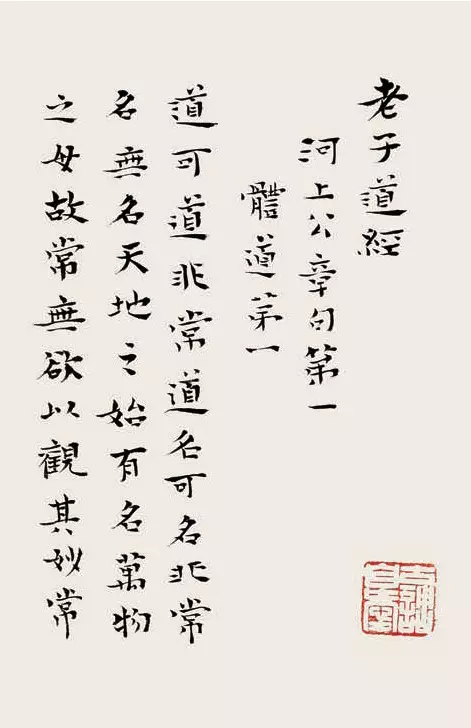 老子道經
河上公章句第一
體道第一
道可道非常道名可名非常
名無名天地之始有名萬物
之母故常無欲以觀其妙常